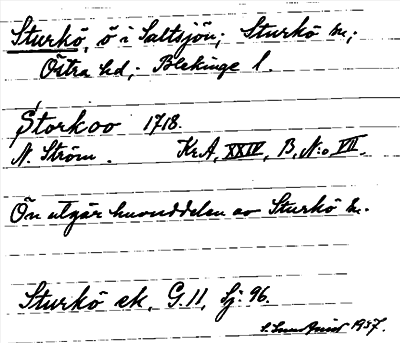 Sturkö, ö i Saltsjön; Sturkö sn;
Östra hd; Blekinge l.
Storkoo 1718.
N. Ström. KrA, XXIV, B, N:o VII.
Ön utgör huvuddelen av Sturkö sn.
Sturkö ek. G. 11, Sj: 96.
1937.